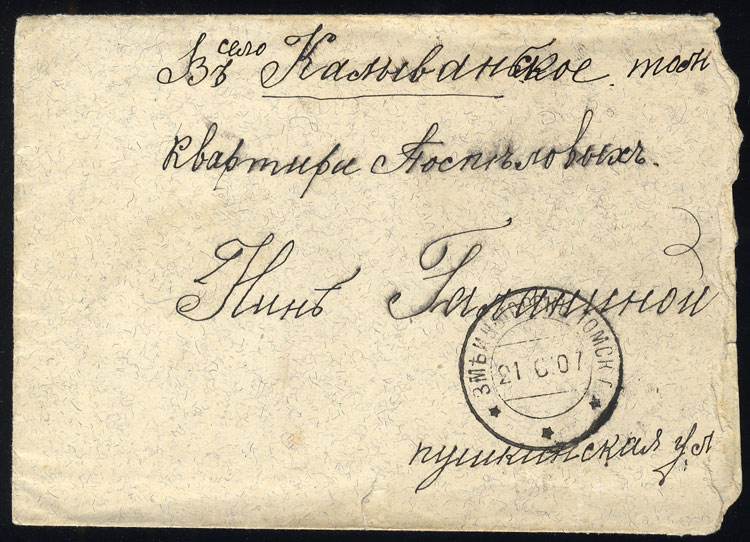 Въ село Калыванское. том
квартира Поспѣловыхъ.
Нинѣ Галаниной
ЗМѢИНОГОРСКЪ ТОМСК. Г.
21 6 07
пушкинская ул